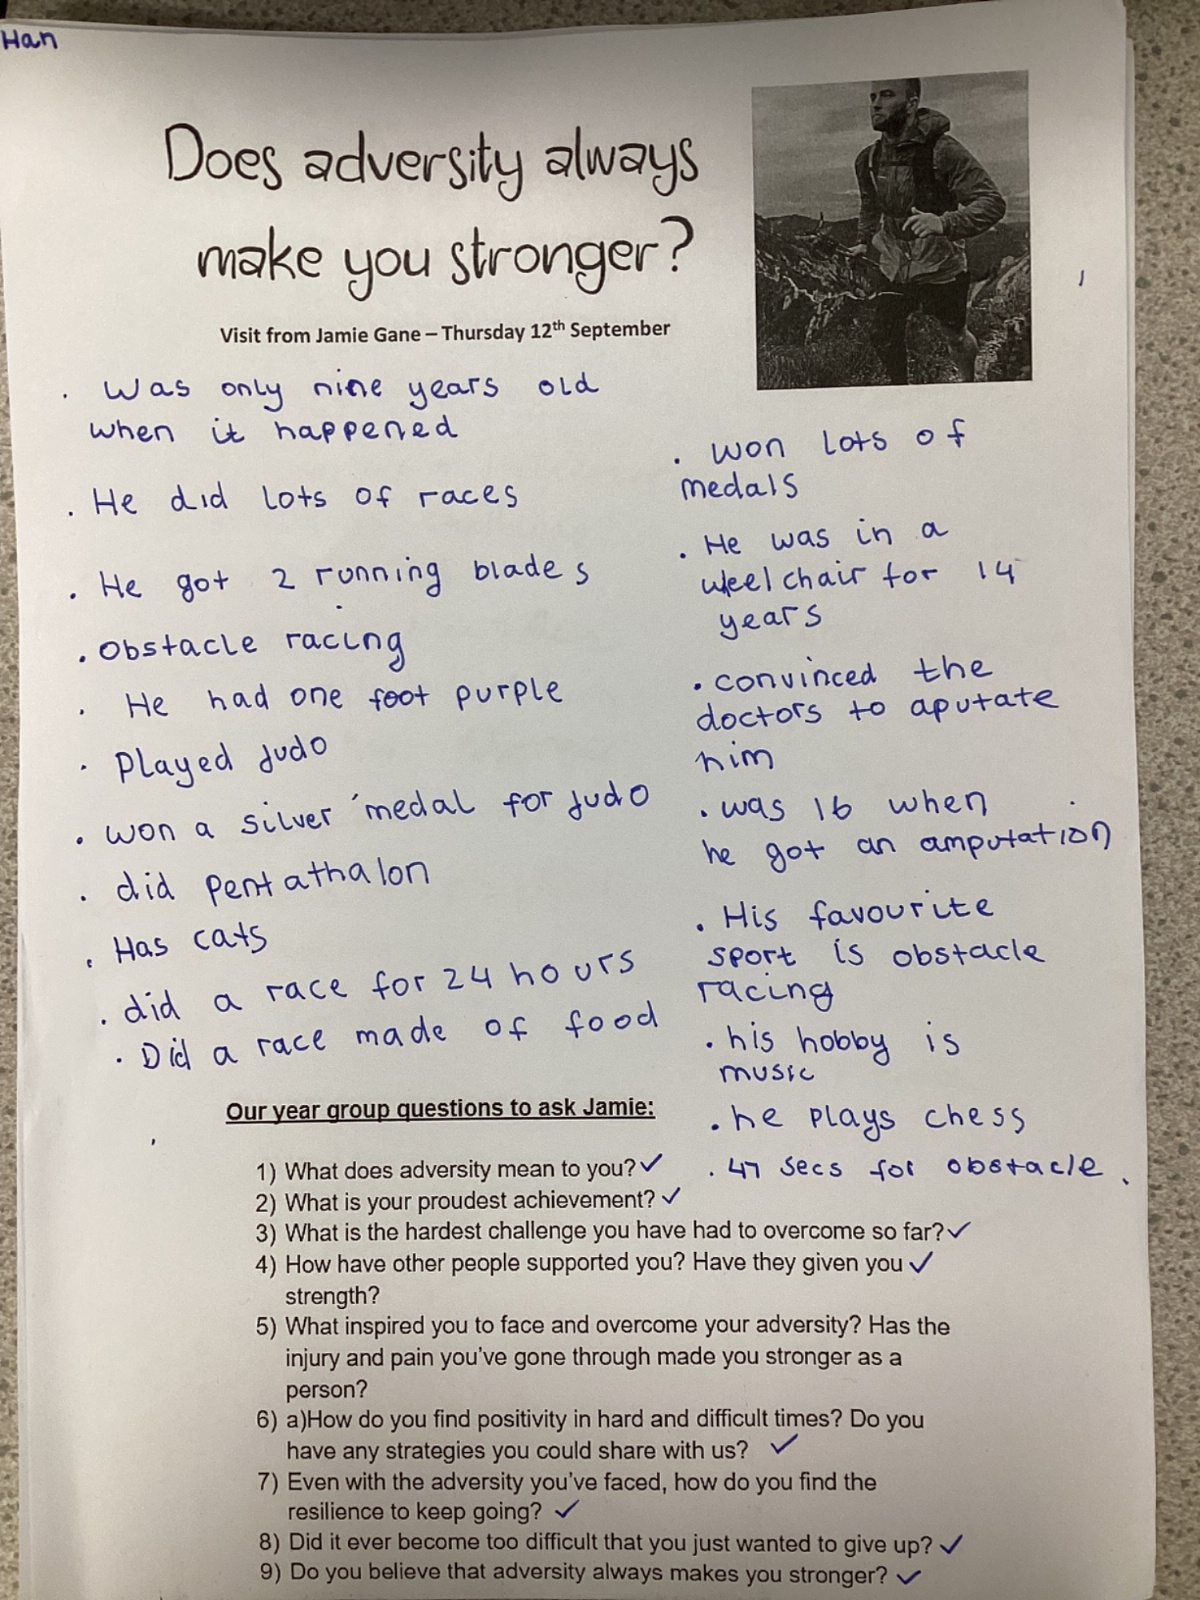 Han
Does adversity always
make you stronger?
Visit from Jamie Gane – Thursday 12th September
. Was only nine years old
when it happened
. He did lots of races
. He got 2 running blades
. Obstacle racing
. He had one foot purple
. Played Judo
. won a silver medal for Judo
. did Pentathalon
. Has cats
. did a race for 24 hours
. Did a race made of food
. won lots of
medals
. He was in a
weelchair for 14
years
. convinced the
doctors to aputate
him
. was 16 when
he got an amputation
. His favourite
sport is obstacle
racing
. his hobby is
music
. he plays chess
. 47 secs for obstacle.
Our year group questions to ask Jamie:
1) What does adversity mean to you? ✓
2) What is your proudest achievement? ✓
3) What is the hardest challenge you have had to overcome so far? ✓
4) How have other people supported you? Have they given you ✓
strength?
5) What inspired you to face and overcome your adversity? Has the
injury and pain you've gone through made you stronger as a
person?
6) a)How do you find positivity in hard and difficult times? Do you
have any strategies you could share with us? ✓
7) Even with the adversity you've faced, how do you find the
resilience to keep going? ✓
8) Did it ever become too difficult that you just wanted to give up? ✓
9) Do you believe that adversity always makes you stronger? ✓